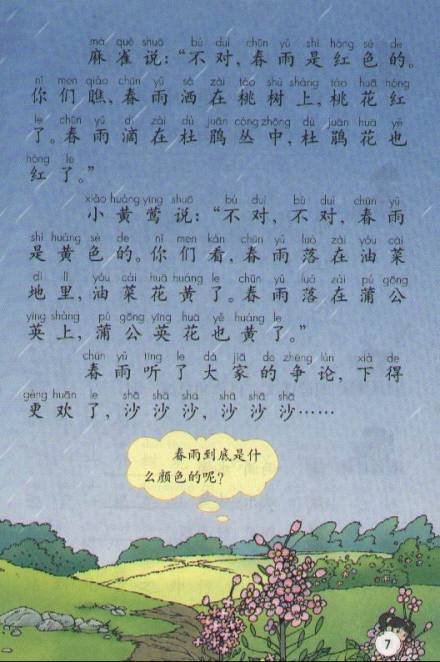 má què shuō bù duì chūn yǔ shì hóng sè de
麻雀说：“不对，春雨是红色的。
nǐ men qiáo chūn yǔ sǎ zài táo shù shàng táo huā hóng
你们瞧，春雨洒在桃树上，桃花红
le chūn yǔ dī zài dù juān cóng zhōng dù juān huā yě
了。春雨滴在杜鹃丛中，杜鹃花也
hóng le
红了。”
xiǎo huáng yīng shuō bù duì bù duì chūn yǔ
小黄莺说：“不对，不对，春雨
shì huáng sè de nǐ men kàn chūn yǔ luò zài yóu cài
是黄色的。你们看，春雨落在油菜
dì lǐ yóu cài huā huáng le chūn yǔ luò zài pú gōng
地里，油菜花黄了。春雨落在蒲公
yīng shàng pú gōng yīng huā yě huáng le
英上，蒲公英花也黄了。”
chūn yǔ tīng le dà jiā de zhēng lùn xià de
春雨听了大家的争论，下得
gèng huān le shā shā shā shā shā shā
更欢了，沙沙沙，沙沙沙……
春雨到底是什
么颜色的呢？
7